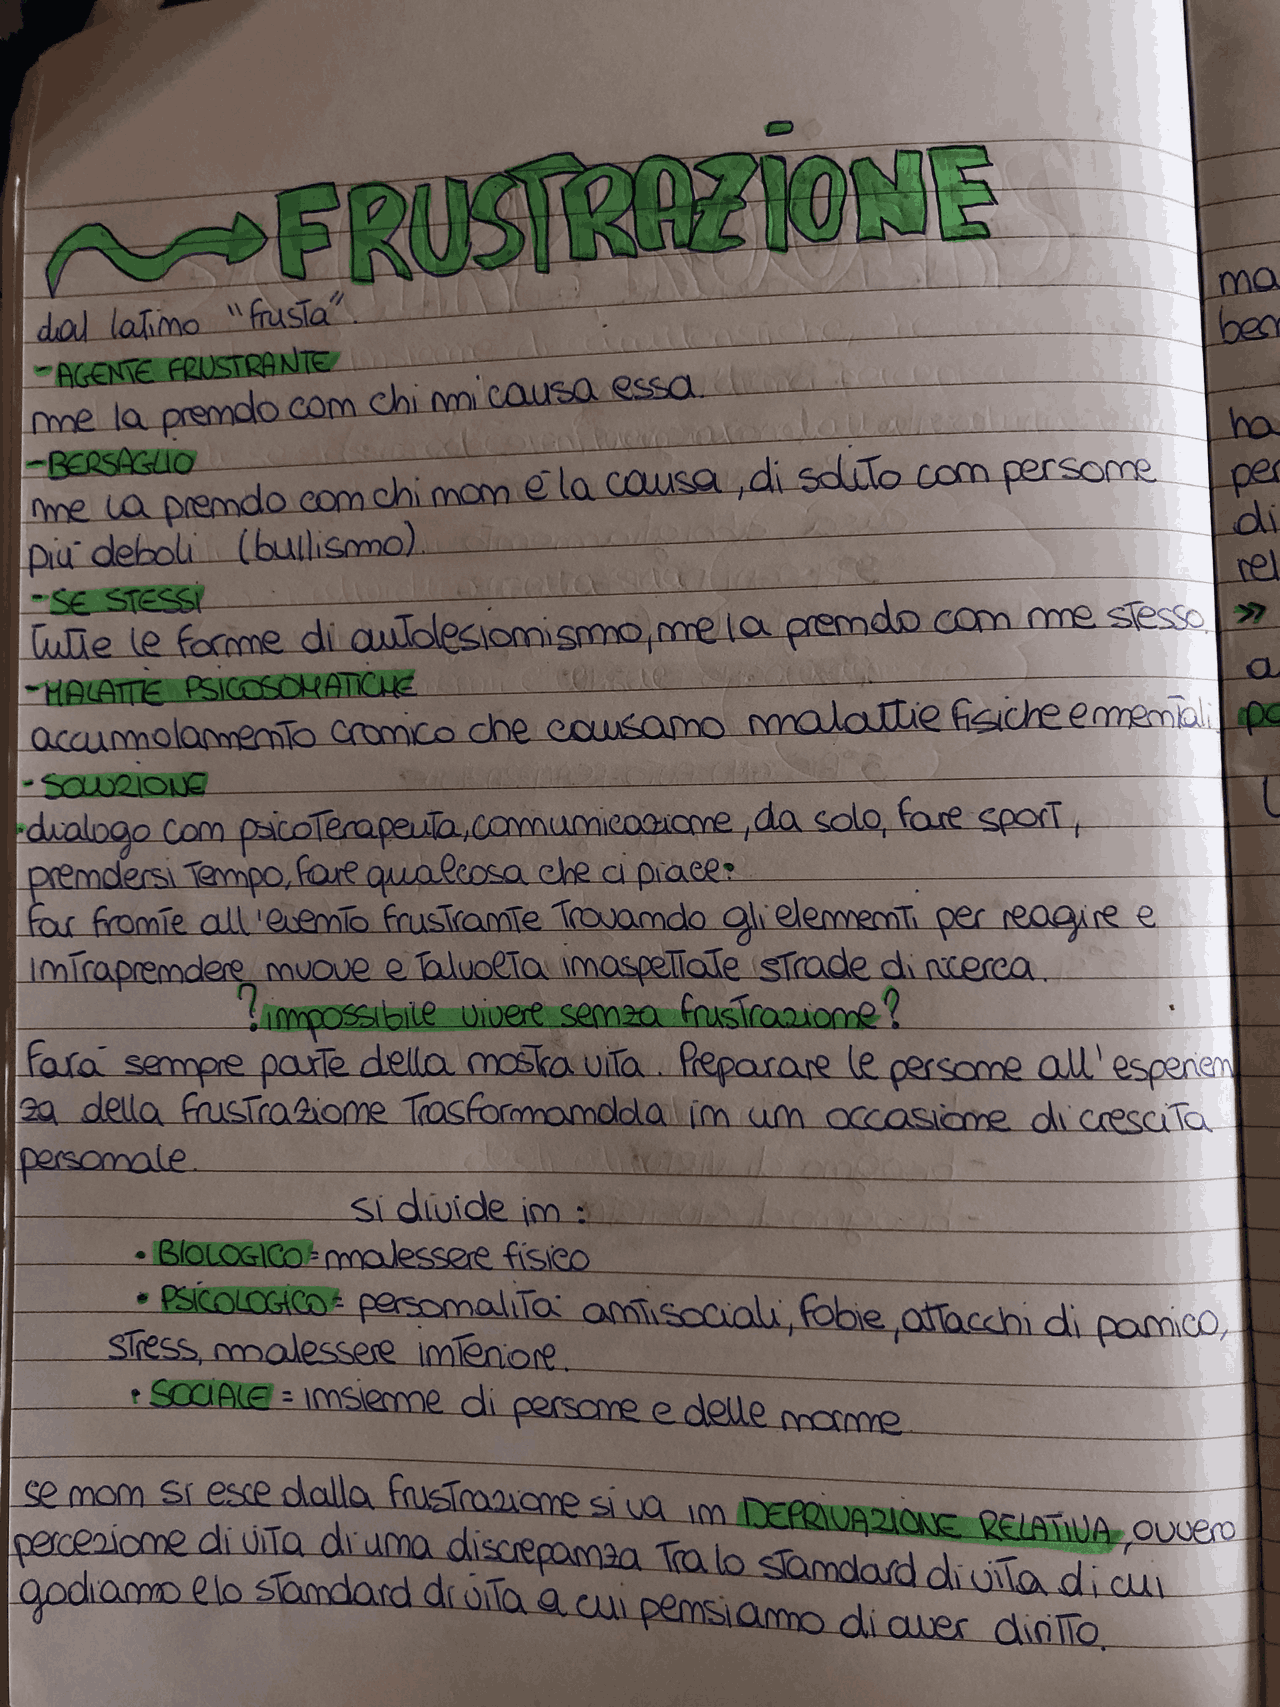 FRUSTRAZIONE
dal latino "frusta".
- AGENTE FRUSTRANTE
me la prendo con chi mi causa essa.
- BERSAGLIO
me la prendo con chi non è la causa, di solito con persone
più deboli (bullismo).
- SE STESSI
tutte le forme di autolesionismo, me la prendo con me stesso.
- MALATTIE PSICOSOMATICHE
accumolamento cronico che causano malattie fisiche e mentali
- SOLUZIONE
• dialogo con psicoterapeuta, comunicazione, da solo, fare sport,
prendersi tempo, fare qualcosa che ci piace •
far fronte all'evento frustrante trovando gli elementi per reagire e
intraprendere nuove e talvolta inaspettate strade di ricerca.
? impossibile vivere senza frustrazione?
farà sempre parte della nostra vita. Preparare le persone all'esperien
za della frustrazione trasformandola in un occasione di crescita
personale.
si divide in:
• BIOLOGICO = malessere fisico
• PSICOLOGICO = personalità antisociali, fobie, attacchi di panico,
stress, malessere interiore.
• SOCIALE = insieme di persone e delle norme.
se non si esce dalla frustrazione si va in DEPRIVAZIONE RELATIVA, ovvero
percezione di vita di una discrepanza tra lo standard di vita di cui
godiamo e lo standard di vita a cui pensiamo di aver diritto.
ma
ben
ha
per
di
rel
»
a
po